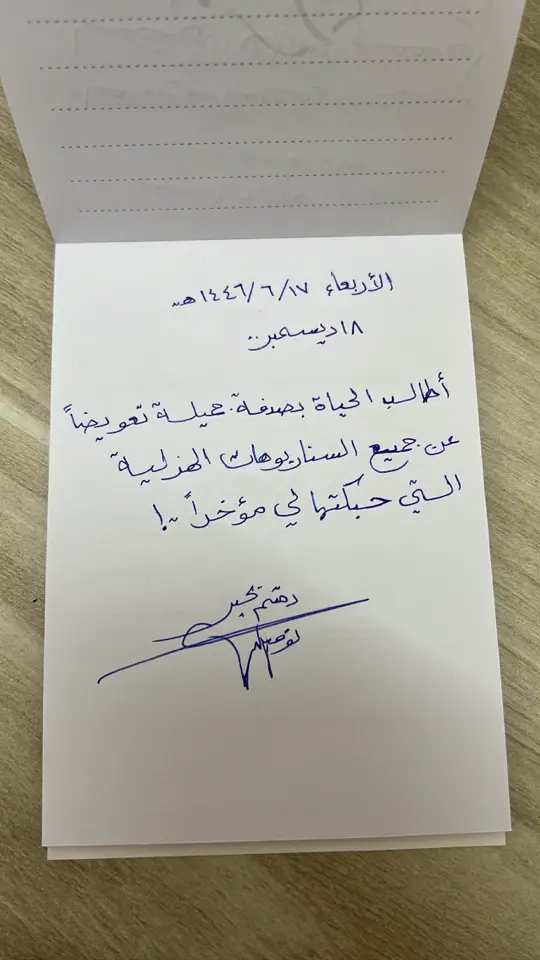 الأربعاء ١٤٤٦/٦/١٧هـ
١٨ ديسمبر..
أطالب الحياة بصدفة جميلة تعويضاً
عن جميع السناريوهات الهزلية
التي حبكتها لي مؤخراً..!
دمتم بخير